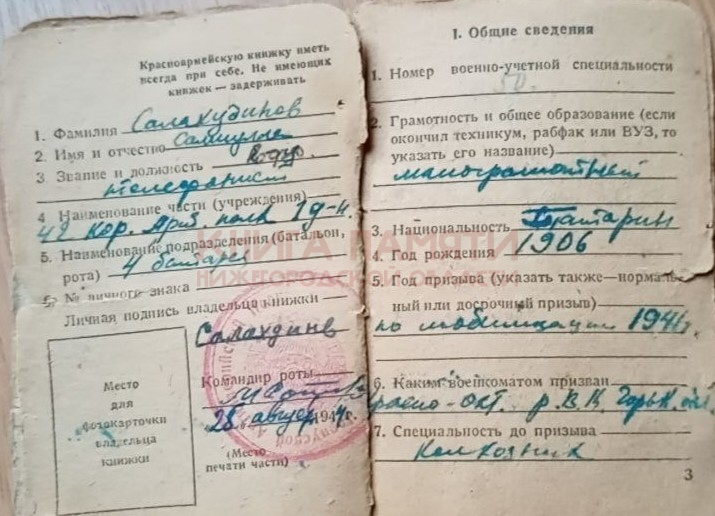 Красноармейскую книжку иметь
всегда при себе. Не имеющих
книжек — задерживать
1. Фамилия Салахудинов
2. Имя и отчество
3 Звание и должность
телефонист
4 Наименование части (учреждения)
42 кор. Арт полк
5. Наименование подразделения (батальон,
рота) 4 батарея
№ личного знака
Личная подпись владельца книжки
Салахдинв
Место
для
фотокарточки
владельца
книжки
Командир роты
28 август 194 г.
(Место
печати части)
I. Общие сведения
1. Номер военно-учетной специальности
50.
2. Грамотность и общее образование (если
окончил техникум, рабфак или ВУЗ, то
указать его название)
малограмотный
3. Национальность Татарин
4. Год рождения 1906
5. Год призыва (указать также—нормаль-
ный или досрочный призыв)
по мобилизации 1941г.
6. Каким военкоматом призван
красно-окт. р.в.к Горьк обл
7. Специальность до призыва
Колхозник
3
КНИГА ПАМЯТИ
НИЖЕГОРОДСКОЙ ОБЛАСТИ